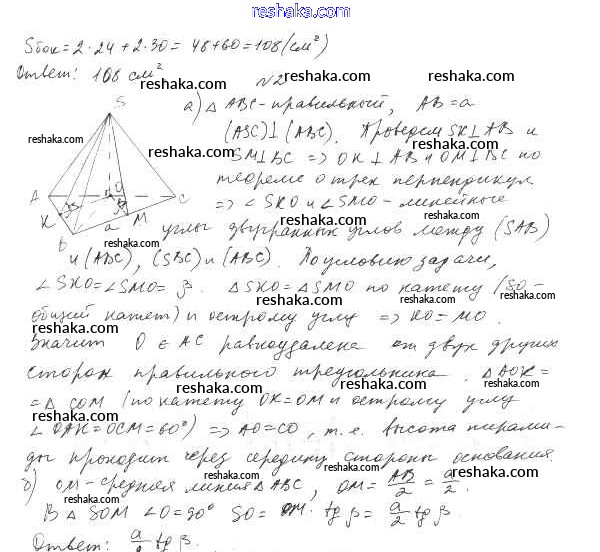 reshaka.com
Sбок = 2·24 + 2·30 = 48+60 = 108 (см²)
Ответ: 108 см²
reshaka.com reshaka.com
№2 reshaka.com
S
а) △ ABC - правильный, AB = a
reshaka.com
(ASC)⊥(ABC). Проведем SK⊥AB и
reshaka.com reshaka.com
SM⊥BC => OK⊥AB и OM⊥BC по
reshaka.com
A O C
теореме о трех перпендикул
K β β M
=> ∠SKO и ∠SMO - линейные
B a reshaka.com
reshaka.com reshaka.com
углы двугранных углов между (SAB)
reshaka.com
и (ABC), (SBC) и (ABC). По условию задачи,
reshaka.com reshaka.com
∠SKO = ∠SMO = β. △SKO = △SMO по катету (SO -
общий катет) и острому углу => KO = MO.
reshaka.com reshaka.com reshaka.com
Значит O ∈ AC равноудалена от двух других
сторон правильного треугольника. △AOK =
reshaka.com reshaka.com reshaka.com
= △COM (по катету OK=OM и острому углу
reshaka.com reshaka.com
∠OAK = OCM = 60°) => AO = CO, т.е. высота пирами-
ды проходит через середину стороны основания.
reshaka.com reshaka.com
б) OM - средняя линия △ABC, OM = AB/2 = a/2.
reshaka.com
В △ SOM ∠O = 90° SO = OM · tg β = a/2 tg β.
reshaka.com reshaka.com reshaka.com
Ответ: a/2 tg β.